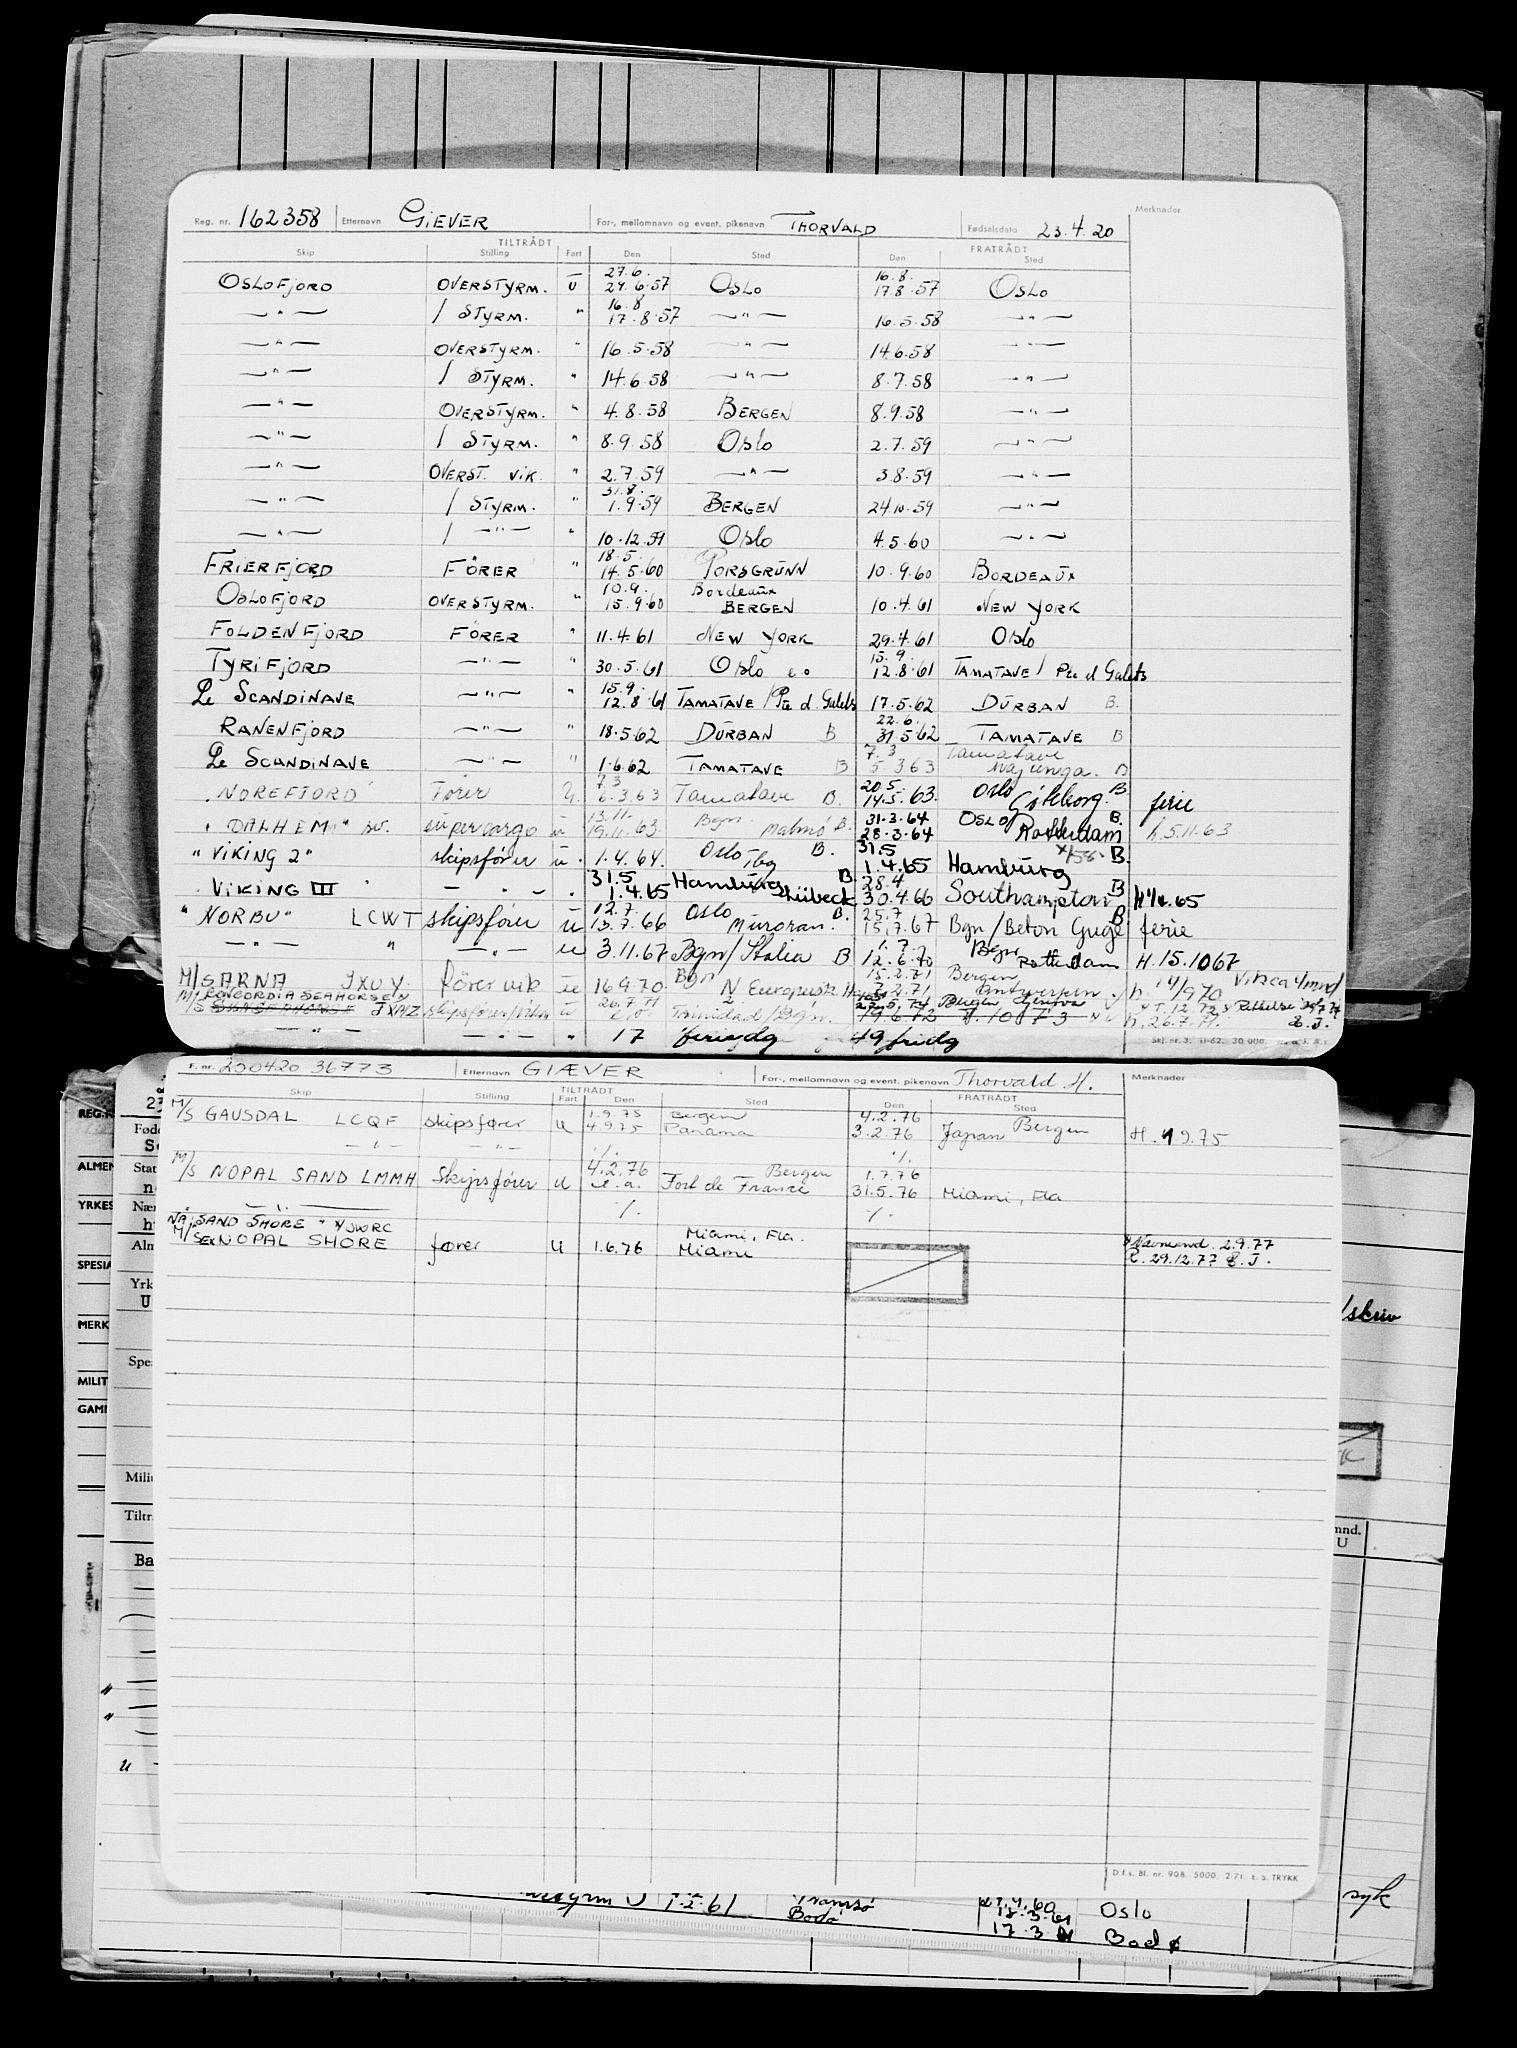 Reg. nr. 162358 Etternavn GIEVER For-, mellomnavn og event. pikenavn THORVALD Fødselsdato 23.4.20 Merknader
TILTRÅDT FRATRÅDT
Skip Stilling Fart Den Sted Den Sted
27.6. 16.8.
OSLOFJORD OVERSTYRM. U 24.6.57 OSLO 17.8.57 OSLO
16.8
—"— 1 STYRM. " 17.8.57 —"— 16.5.58 —"—
—"— OVERSTYRM. " 16.5.58 —"— 14.6.58 —"—
—"— 1 STYRM. " 14.6.58 —"— 8.7.58 —"—
—"— OVERSTYRM. " 4.8.58 BERGEN 8.9.58 —"—
—"— 1 STYRM. " 8.9.58 OSLO 2.7.59 —"—
—"— OVERST. VIK. " 2.7.59 —"— 3.8.59 —"—
31.8.
—"— 1 STYRM. " 1.9.59 BERGEN 24.10.59 —"—
—"— 1 —"— " 10.12.59 OSLO 4.5.60 —"—
18.5.
FRIERFJORD FÖRER " 14.5.60 PORSGRUNN 10.9.60 BORDEAUX
10.9. Bordeaux
OSLOFJORD OVERSTYRM. " 15.9.60 BERGEN 10.4.61 NEW YORK
FOLDENFJORD FÖRER " 11.4.61 NEW YORK 29.4.61 OSLO
15.9.
TYRIFJORD —"— " 30.5.61 OSLO e.o 12.8.61 TAMATAVE / Pte d Galets
15.9.
Le SCANDINAVE —"— " 12.8.61 TAMATAVE / Pte d. Galets 17.5.62 DURBAN B.
22.6.
RANENFJORD —"— " 18.5.62 DURBAN B 31.5.62 TAMATAVE B
7.3 Tamatave
Le SCANDINAVE —"— " 1.6.62 TAMATAVE B 5.3.63 Majunga. B
7.3 20.5. Oslo B
NOREFJORD Fører U. 6.3.63 Tamatave B. 14.5.63. Göteborg. ferie
13.11. Bgn. 31.3.64 OSLO B.
"DALHEM" sv. supercargo u 19.11.63. Malmö B. 28.3.64 Rotterdam h.5.11.63
Oslo B. 31.5 B.
"VIKING 2" skipsfører u. 1.4.64. Tbg 1.4.65 Hamburg
31.5 Hamburg B. 28.4 B
VIKING III — " — . 1.4.65 Lübeck 30.4.66 Southampton
12.7 Oslo B. 25.7 B
"NORBU" LCWT skipsfører u 13.7.66 Muroran. 15.7.67 Bgn/Beton Guge ferie
1.7. Bgn
—"— " —"— u 3.11.67 Bgn/Italia B 12.6.70 Rotterdam H.15.1067
Bgn 15.2.71 Bergen
M/S ARNA JXUY förer vik. u 16970 N Europeisk H 7.2.71 Antwerpen h. 14/970 Vik ca 4 mnd
M/S CONCORDIA SEAHORSE
26.7.71 Bergen Genova
JXMZ skipsfører/vik u Trinidad/Bgn. 19.6.72 h.26.7.71.
—"— —"— " 17 feriedg 49 fridg
Skj. nr. 3. 11-62. 30 000.
F. nr. 230420 36773 Etternavn GIÆVER For-, mellomnavn og event. pikenavn Thorvald H. Merknader
TILTRÅDT FRATRÅDT
Skip Stilling Fart Den Sted Den Sted
1.9.75 Bergen 4.2.76 Bergen
M/S GAUSDAL LCQF skipsfører U 4.9.75 Panama 3.2.76 Japan H. 1.9.75
—"— —"— ·/. ·/.
4.2.76 Bergen 1.7.76
M/S NOPAL SAND LMMH Skipsfører U e.a. Fort de France 31.5.76 Miami, Fla
—"— ·/. ·/.
Nå: "SAND SHORE" Miami, Fla.
M/S Ex NOPAL SHORE fører U 1.6.76 Miami Navneend. 2.9.77
R. 29.12.77 B.J.
D.f.s. Bl. nr. 908. 5000. 2-71. E. S. TRYKK
REG.N
ALMEN
YRKES
SPESIA
MERK
MILIT
GAMM
27
Føde
Stat
Nær
Alm
Yrk
U
Spes
Milit
Tiltr
Ba
"
"
u
skriv
mnd.
U
syk
1-2-61 Tromsø 27.4.60 Oslo
Bodø 17.3.61 Bodø